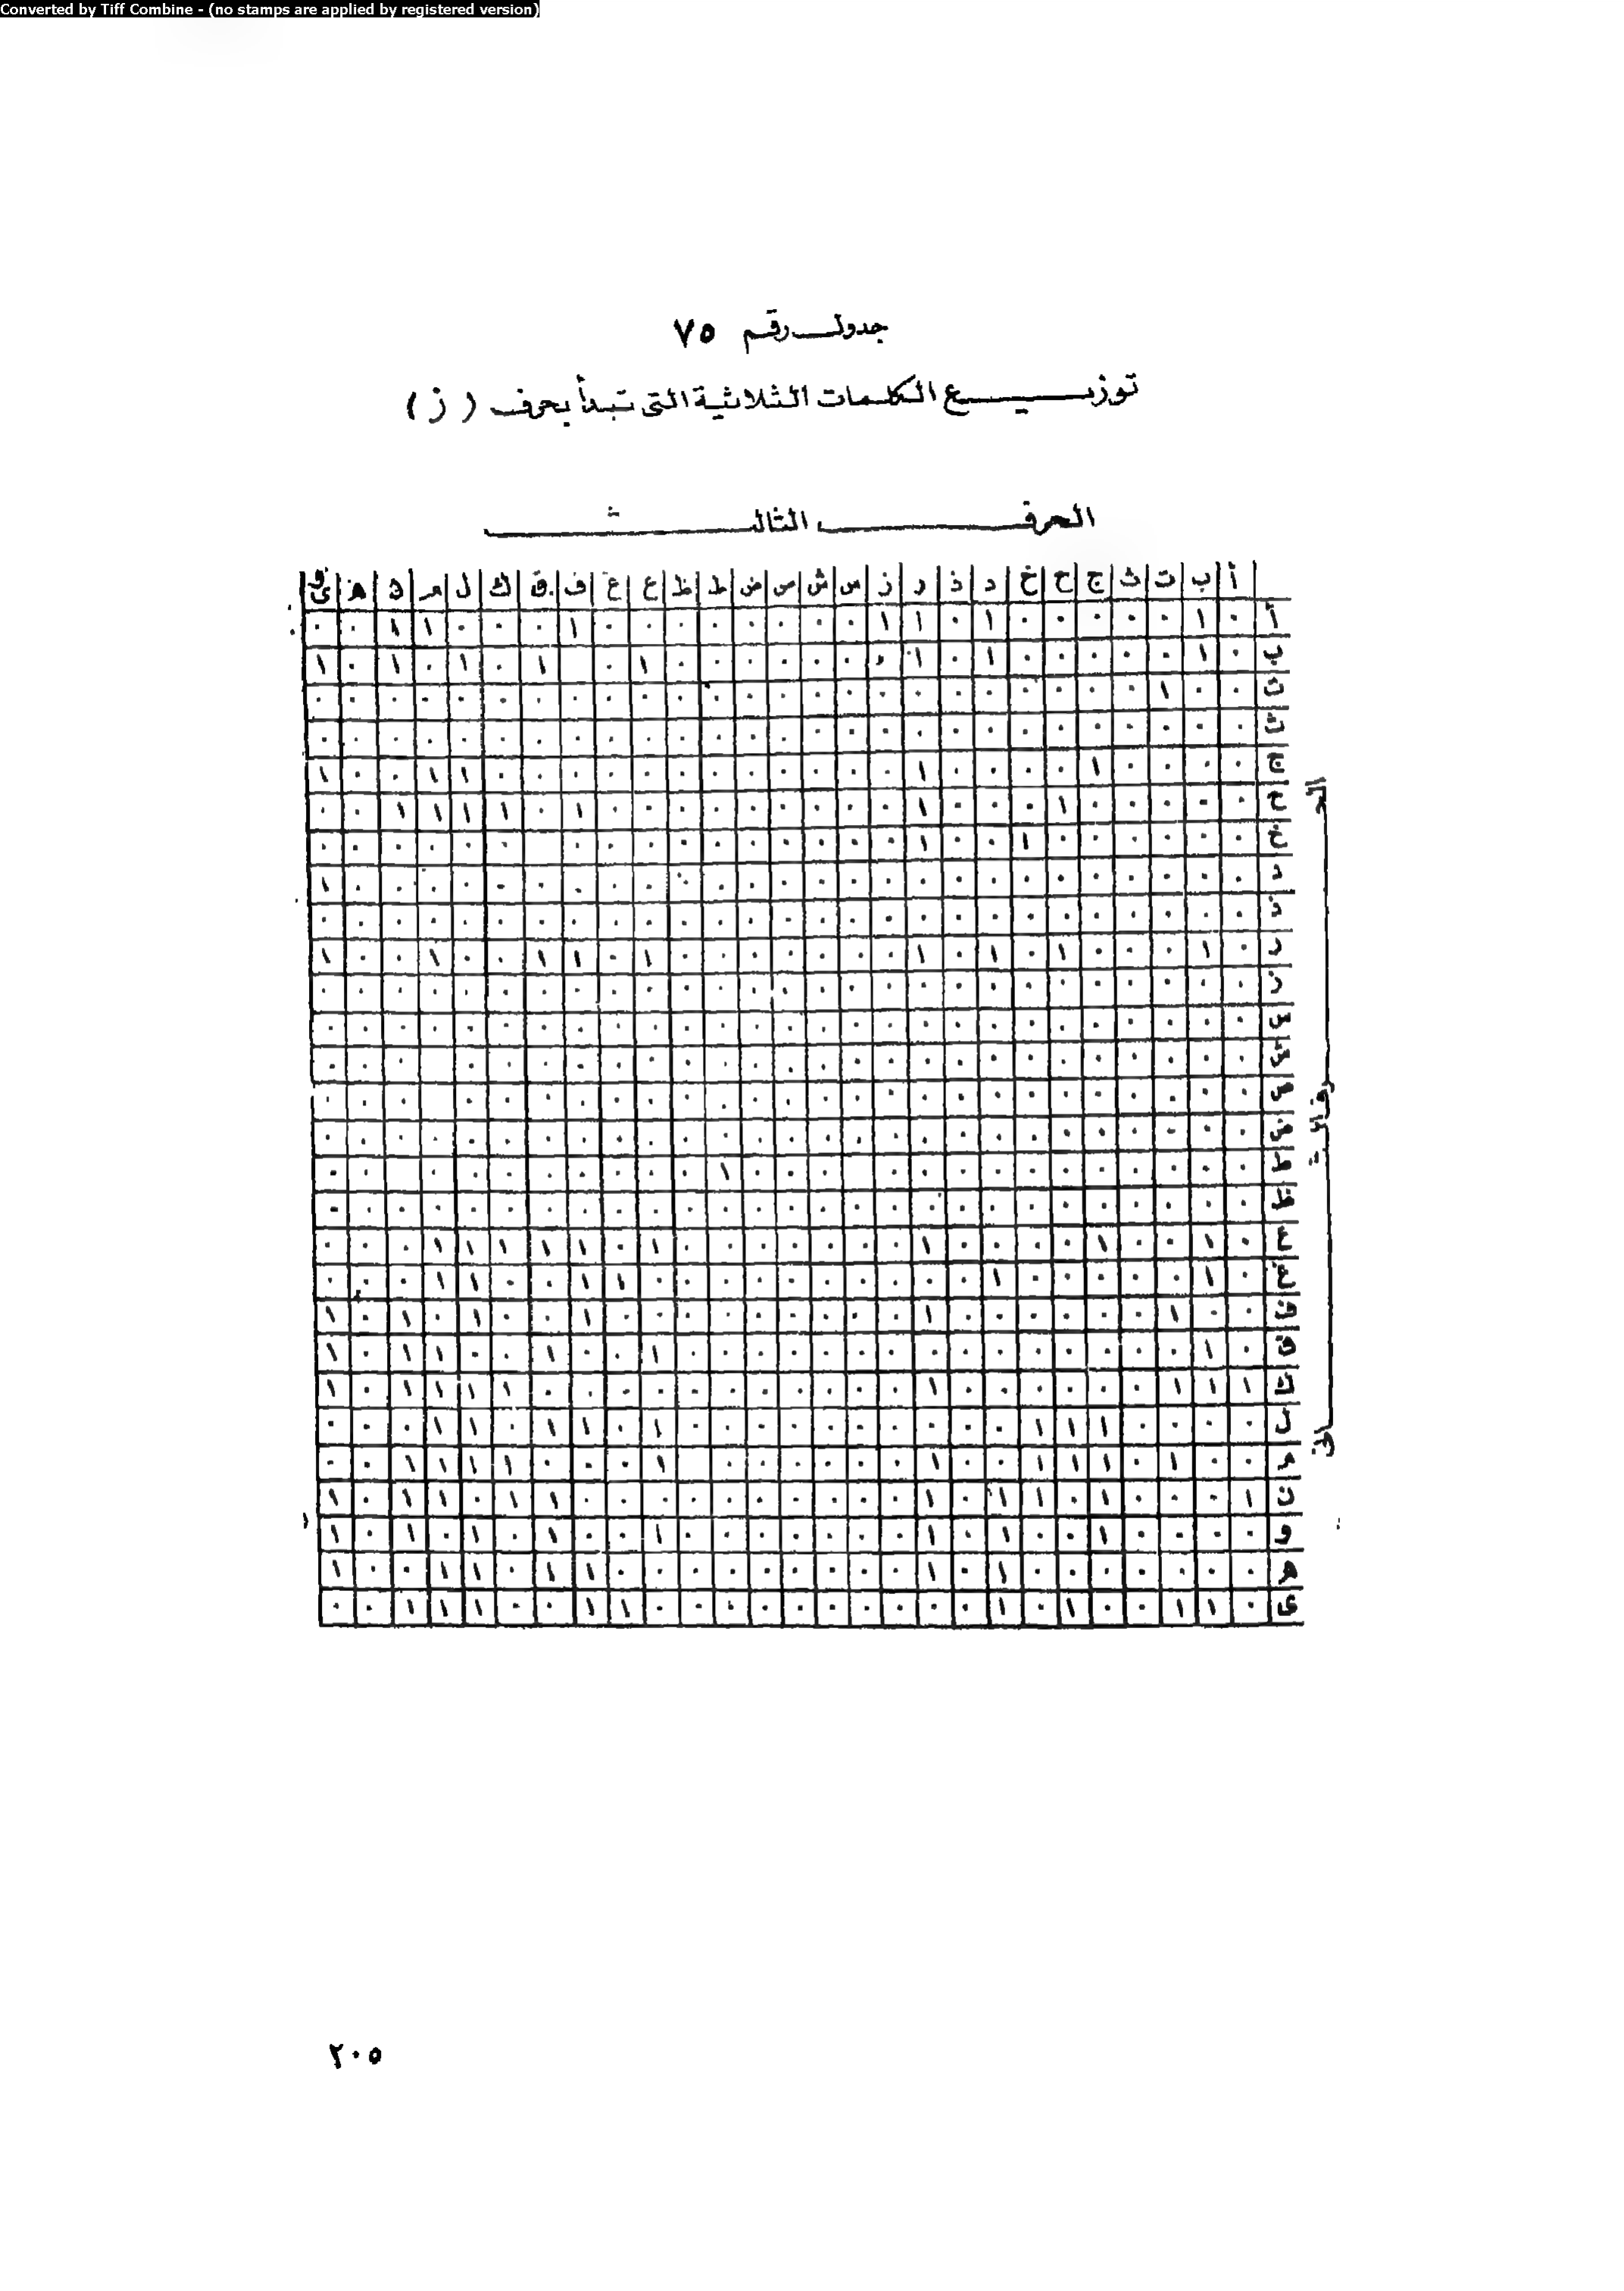 Converted by Tiff Combine - (no stamps are applied by registered version)
جدول رقم ٧٥
توزيع الكلمات الثلاثية التى تبدأ بحرف ( ز )
الحرف الثالث
أ ب ت ث ج ح خ د ذ ر ز س ش ص ض ط ظ ع غ ف ق ك ل م ن هـ و ى
أ ٠ ١ ٠ ٠ ٠ ٠ ٠ ١ ٠ ١ ١ ٠ ٠ ٠ ٠ ٠ ٠ ٠ ٠ ١ ٠ ٠ ٠ ١ ١ ٠ ٠
ب ٠ ١ ٠ ٠ ٠ ٠ ٠ ١ ٠ ١ ٠ ٠ ٠ ٠ ٠ ٠ ٠ ١ ٠ ١ ٠ ١ ٠ ١ ٠ ١
ت ٠ ٠ ١ ٠ ٠ ٠ ٠ ٠ ٠ ٠ ٠ ٠ ٠ ٠ ٠ ٠ ٠ ٠ ٠ ٠ ٠ ٠ ٠ ٠ ٠ ٠ ٠
ث ٠ ٠ ٠ ٠ ٠ ٠ ٠ ٠ ٠ ٠ ٠ ٠ ٠ ٠ ٠ ٠ ٠ ٠ ٠ ٠ ٠ ٠ ٠ ٠ ٠ ٠ ٠
ج ٠ ٠ ٠ ٠ ١ ٠ ٠ ٠ ٠ ١ ٠ ٠ ٠ ٠ ٠ ٠ ٠ ٠ ٠ ٠ ٠ ٠ ١ ١ ٠ ٠ ١
ح ٠ ٠ ٠ ٠ ٠ ١ ٠ ٠ ٠ ١ ٠ ٠ ٠ ٠ ٠ ٠ ٠ ٠ ٠ ١ ٠ ١ ١ ١ ١ ٠ ٠
خ ٠ ٠ ٠ ٠ ٠ ٠ ١ ٠ ٠ ١ ٠ ٠ ٠ ٠ ٠ ٠ ٠ ٠ ٠ ٠ ٠ ٠ ٠ ٠ ٠ ٠
د ٠ ٠ ٠ ٠ ٠ ٠ ٠ ٠ ٠ ٠ ٠ ٠ ٠ ٠ ٠ ٠ ٠ ٠ ٠ ٠ ٠ ٠ ٠ ٠ ٠ ٠ ١
ذ ٠ ٠ ٠ ٠ ٠ ٠ ٠ ٠ ٠ ٠ ٠ ٠ ٠ ٠ ٠ ٠ ٠ ٠ ٠ ٠ ٠ ٠ ٠ ٠ ٠ ٠ ٠
ر ٠ ١ ٠ ٠ ٠ ١ ٠ ١ ٠ ١ ٠ ٠ ٠ ٠ ٠ ٠ ٠ ١ ٠ ١ ١ ٠ ٠ ١ ٠ ٠ ١
ز ٠ ٠ ٠ ٠ ٠ ٠ ٠ ٠ ٠ ٠ ٠ ٠ ٠ ٠ ٠ ٠ ٠ ٠ ٠ ٠ ٠ ٠ ٠ ٠ ٠ ٠ ٠
س ٠ ٠ ٠ ٠ ٠ ٠ ٠ ٠ ٠ ٠ ٠ ٠ ٠ ٠ ٠ ٠ ٠ ٠ ٠ ٠ ٠ ٠ ٠ ٠ ٠ ٠ ٠
ش ٠ ٠ ٠ ٠ ٠ ٠ ٠ ٠ ٠ ٠ ٠ ٠ ٠ ٠ ٠ ٠ ٠ ٠ ٠ ٠ ٠ ٠ ٠ ٠ ٠ ٠
ص ٠ ٠ ٠ ٠ ٠ ٠ ٠ ٠ ٠ ٠ ٠ ٠ ٠ ٠ ٠ ٠ ٠ ٠ ٠ ٠ ٠ ٠ ٠ ٠ ٠ ٠
ض ٠ ٠ ٠ ٠ ٠ ٠ ٠ ٠ ٠ ٠ ٠ ٠ ٠ ٠ ٠ ٠ ٠ ٠ ٠ ٠ ٠ ٠ ٠ ٠ ٠ ٠ ٠
ط ٠ ٠ ٠ ٠ ٠ ٠ ٠ ٠ ٠ ٠ ٠ ٠ ٠ ٠ ١ ٠ ٠ ٠ ٠ ٠ ٠ ٠ ٠ ٠ ٠ ٠
ظ ٠ ٠ ٠ ٠ ٠ ٠ ٠ ٠ ٠ ٠ ٠ ٠ ٠ ٠ ٠ ٠ ٠ ٠ ٠ ٠ ٠ ٠ ٠ ٠ ٠ ٠ ٠
ع ٠ ١ ٠ ٠ ١ ٠ ٠ ٠ ٠ ١ ٠ ٠ ٠ ٠ ٠ ٠ ٠ ١ ٠ ١ ١ ١ ١ ١ ٠ ٠ ٠
غ ٠ ١ ٠ ٠ ٠ ٠ ٠ ١ ٠ ٠ ٠ ٠ ٠ ٠ ٠ ٠ ٠ ٠ ١ ١ ٠ ٠ ١ ١ ٠ ٠ ٠
ف ٠ ٠ ١ ٠ ٠ ٠ ٠ ٠ ٠ ١ ٠ ٠ ٠ ٠ ٠ ٠ ٠ ٠ ٠ ١ ٠ ٠ ١ ٠ ١ ٠ ١
ق ٠ ١ ٠ ٠ ٠ ٠ ٠ ٠ ٠ ٠ ٠ ٠ ٠ ٠ ٠ ٠ ٠ ١ ٠ ٠ ١ ٠ ٠ ١ ١ ٠ ١
ك ١ ١ ١ ٠ ٠ ٠ ٠ ٠ ٠ ١ ٠ ٠ ٠ ٠ ٠ ٠ ٠ ٠ ٠ ٠ ٠ ١ ١ ١ ١ ٠ ١
ل ٠ ٠ ٠ ٠ ١ ١ ١ ٠ ٠ ٠ ٠ ٠ ٠ ٠ ٠ ٠ ٠ ١ ٠ ١ ١ ٠ ١ ١ ٠ ٠ ٠
م ٠ ٠ ١ ٠ ١ ١ ١ ٠ ٠ ١ ٠ ٠ ٠ ٠ ٠ ٠ ١ ٠ ٠ ٠ ١ ١ ١ ١ ٠ ٠
ن ١ ٠ ٠ ٠ ١ ٠ ١ ١ ٠ ١ ٠ ٠ ٠ ٠ ٠ ٠ ٠ ٠ ٠ ٠ ١ ١ ٠ ١ ١ ٠ ١
و ٠ ٠ ٠ ٠ ١ ٠ ٠ ١ ٠ ١ ٠ ٠ ٠ ٠ ٠ ٠ ٠ ١ ٠ ٠ ١ ٠ ١ ٠ ١ ٠ ١
هـ ٠ ٠ ٠ ٠ ٠ ٠ ٠ ١ ٠ ١ ٠ ٠ ٠ ٠ ٠ ٠ ٠ ٠ ٠ ١ ١ ٠ ١ ١ ٠ ٠ ١
ى ٠ ١ ١ ٠ ٠ ١ ٠ ١ ٠ ٠ ٠ ٠ ٠ ٠ ٠ ٠ ٠ ٠ ١ ١ ٠ ٠ ١ ١ ١ ٠ ٠
الحرف الثانى
٢٠٥